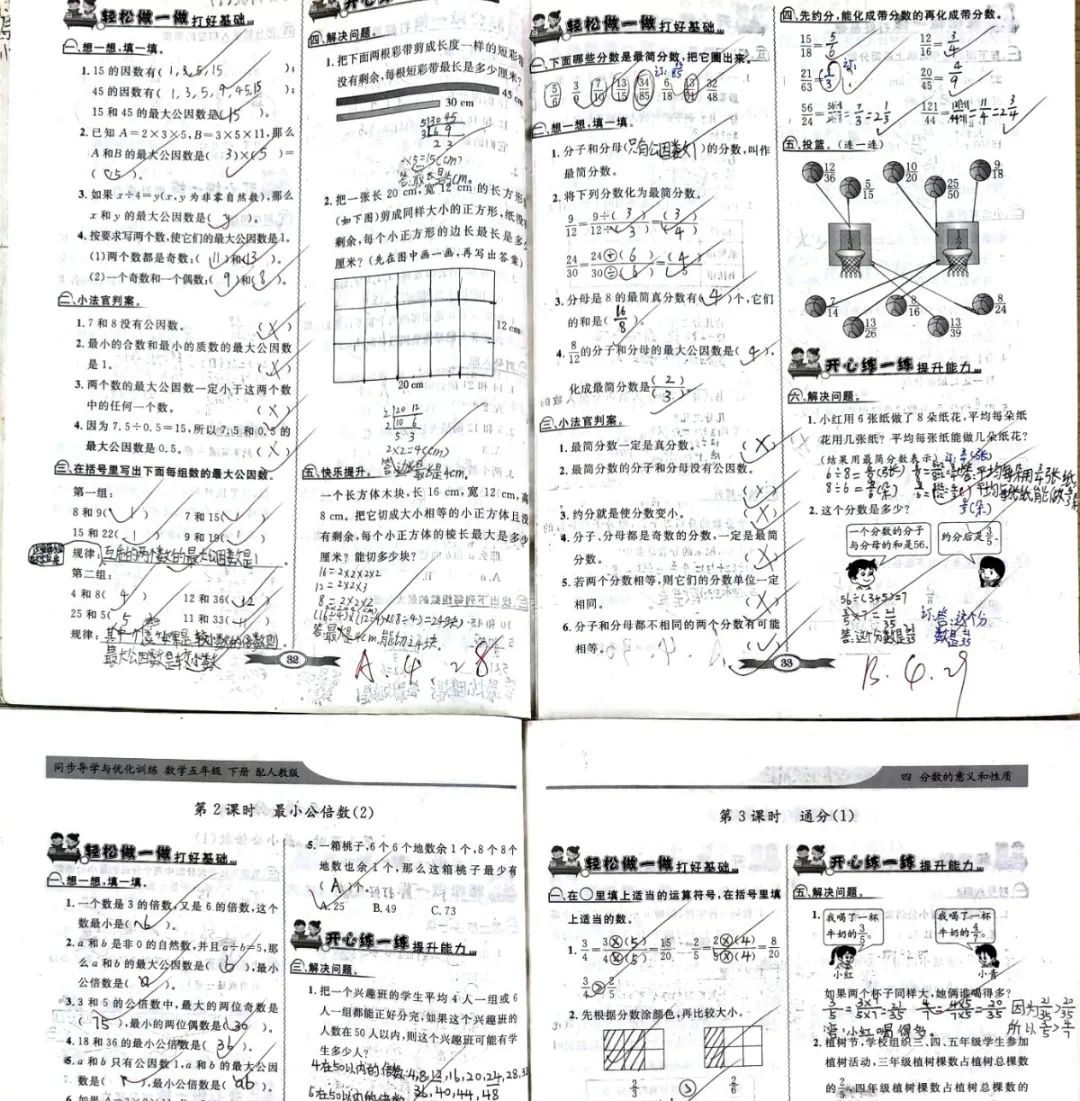 轻松做一做 打好基础
一、想一想,填一填。
1. 15 的因数有( 1,3,5,15 );
45 的因数有( 1,3,5,9,45,15 );
15 和 45 的最大公因数是( 15 )。
2. 已知 A=2×3×5,B=3×5×11,那么
A 和 B 的最大公因数是( 3 )×( 5 )=
( 15 )。
3. 如果 x÷4=y(x,y 为非零自然数),那么
x 和 y 的最大公因数是( y )。
4. 按要求写两个数,使它们的最大公因数是1。
(1)两个数都是奇数:( 11 )和( 13 )。
(2)一个奇数和一个偶数:( 9 )和( 8 )。
二、小法官判案。
1. 7 和 8 没有公因数。 (×)
2. 最小的合数和最小的质数的最大公因数
是 1。 (×)
3. 两个数的最大公因数一定小于这两个数
中的任何一个数。 (×)
4. 因为 7.5÷0.5=15,所以 7.5 和 0.5 的
最大公因数是 0.5。 (×)
三、在括号里写出下面每组数的最大公因数。
第一组:
8 和 9( 1 ) 7 和 15( 1 )
15 和 22( 1 ) 9 和 19( 1 )
规律:互质的两个数的最大公因数是1
第二组:
4 和 8( 4 ) 12 和 36( 12 )
25 和 5( 5 ) 11 和 33( 11 )
规律:
最大公因数是较小数
32
开心练一练
四、解决问题。
1. 把下面两根彩带剪成长度一样的短彩
没有剩余,每根短彩带最长是多少厘米?
45 cm
30 cm
5 30 45
3 6 9
2 3
3×5=15(cm)
2. 把一张长 20 cm,宽 12 cm 的长方形
(如下图)剪成同样大小的正方形,纸没
剩余,每个小正方形的边长最长是多少
厘米?(先在图中画一画,再写出答案)
12 cm
20 cm
2 20 12
2 10 6
5 3
2×2=4(cm)
答:边长最长是4cm。
五、快乐提升。
一个长方体木块,长 16 cm,宽 12 cm,高
8 cm。把它切成大小相等的小正方体且没
有剩余,每个小正方体的棱长最大是多少
厘米?能切多少块?
16=2×2×2×2
12=2×2×3
8=2×2×2
(16÷4)×(12÷4)×(8÷4)=24(块)
答:最大是4cm,能切24块。
A. 4. 28
轻松做一做 打好基础
一、下面哪些分数是最简分数,把它圈出来。
5/6 3/9 7/16 13/15 34/85 6/18 13/31 32/48
二、想一想,填一填。
1. 分子和分母(只有公因数1)的分数,叫作
最简分数。
2. 将下列分数化为最简分数。
9/12=9÷(3)/12÷(3)=(3)/(4)
24/30=24÷(6)/30÷(6)=(4)/(5)
3. 分母是 8 的最简真分数有( 4 )个,它们
的和是( 16/8 )。
4. 8/12的分子和分母的最大公因数是( 4 ),
化成最简分数是(2)/(3)。
三、小法官判案。
1. 最简分数一定是真分数。 (×)
2. 最简分数的分子和分母没有公因数。
(×)
3. 约分就是使分数变小。 (×)
4. 分子、分母都是奇数的分数,一定是最简
分数。 (×)
5. 若两个分数相等,则它们的分数单位一定
相同。 (×)
6. 分子和分母都不相同的两个分数有可能
相等。 (√)
33
四、先约分,能化成带分数的再化成带分数。
15/18=5/6 12/16=3/4
21/63= 1/3 20/45=4/9
56/24= =7/3=2 1/3 121/44= =11/4=2 3/4
五、投篮。(连一连)
12/36 5/15 10/20 25/50 9/18
7/14 13/26 8/16 13/39 8/24
开心练一练 提升能力
六、解决问题。
1. 小红用 6 张纸做了 8 朵纸花,平均每朵纸
花用几张纸?平均每张纸能做几朵纸花?
(结果用最简分数表示)
2. 这个分数是多少?
一个分数的分子
与分母的和是56。
约分后是3/5。
56÷(3+5)=7
答:这个分数是21/35
B. 4. 29
同步导学与优化训练 数学五年级 下册 配人教版
第 2 课时 最小公倍数(2)
轻松做一做 打好基础
一、想一想,填一填。
1. 一个数是 3 的倍数,又是 6 的倍数,这个
数最小是( 6 )。
2. a 和 b 是非 0 的自然数,并且 a÷b=5,那
么 a 和 b 的最大公因数是( b ),最小
公倍数是( a )。
3. 3 和 5 的公倍数中,最大的两位奇数是
( 75 ),最小的两位偶数是( 30 )。
4. 18 和 36 的最小公倍数是( 36 )。
5. a 和 b 只有公因数 1,a 和 b 的最大公因
数是( 1 ),最小公倍数是( ab )。
5. 一箱桃子,6 个 6 个地数余 1 个,8 个 8 个
地数也余 1 个,那么这箱桃子最少有
( A )个。
A. 25 B. 49 C. 73
开心练一练 提升能力
三、解决问题。
1. 把一个兴趣班的学生平均 4 人一组或 6
人一组都能正好分完,如果这个兴趣班的
人数在 50 人以内,则这个兴趣班可能有学
生多少人?
4在50以内的倍数:4,8,12,16,20,24,28,3
36,40,44,48
6在50以内的倍数:
四 分数的意义和性质
第 3 课时 通分(1)
轻松做一做 打好基础
一、在○里填上适当的运算符号,在括号里填
上适当的数。
1. 3/4=3×(5)/4×(5)=15/20 2/5=2×(4)/5×(4)=8/20
3/4>2/5
2. 先根据分数涂颜色,再比较大小。
2/3 > 2/6
开心练一练 提升能力
五、解决问题。
1. 我喝了一杯
牛奶的3/5。
我喝了一杯
牛奶的4/7。
小红 小青
如果两个杯子同样大,她俩谁喝得多?
3/5=3×7/5×7=21/35 4/7=4×5/7×5=20/35 因为21/35>20/35
答:小红喝得多。 所以3/5>4/7
2. 植树节,学校组织三、四、五年级学生参加
植树活动,三年级植树棵数占植树总棵数